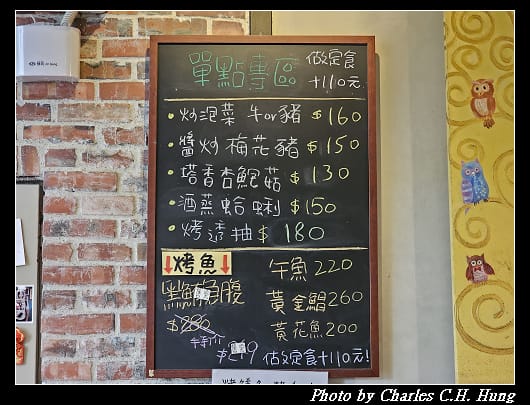 單點專區 做定食
+110元
炒泡菜 牛or豬 $160
醬炒梅花豬 $150
塔香杏鮑菇 $130
酒蒸蛤蜊 $150
烤透抽 $180
↓烤魚↓
午魚 220
黑鮪魚腹
黃金鯧 260
$280
黃花魚 200
特價
$219
做定食+110元!
Photo by Charles C.H. Hung